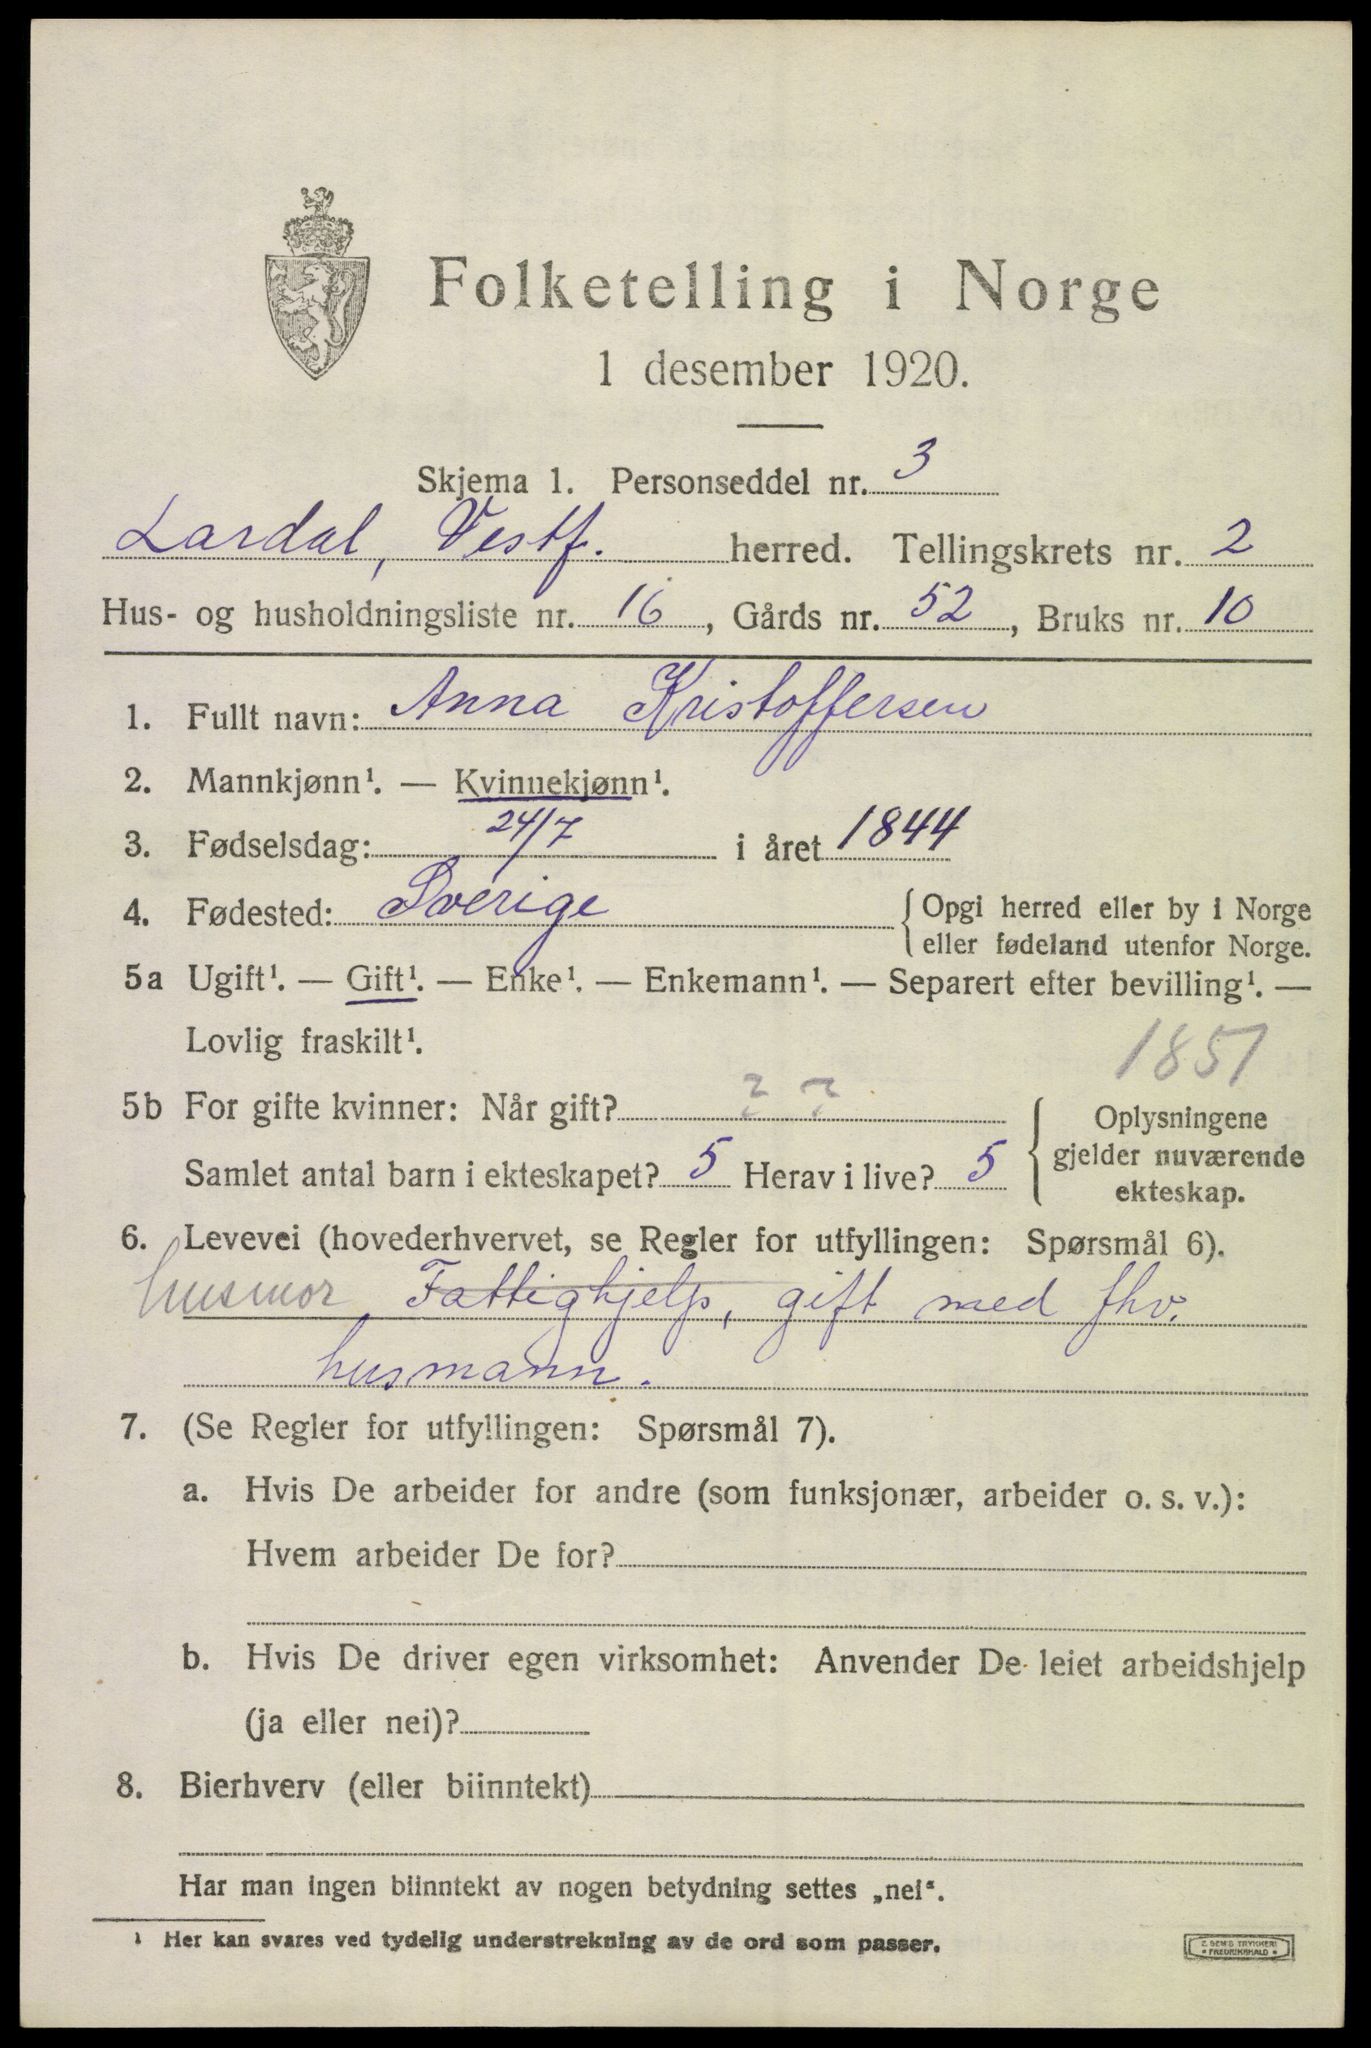 Folketelling i Norge
1 desember 1920.
Skjema 1. Personseddel nr. 3
Lardal, Vestf. herred. Tellingskrets nr. 2
Hus- og husholdningsliste nr. 16, Gårds nr. 52, Bruks nr. 10
1. Fullt navn: Anna Kristoffersen
2. Mannkjønn¹. — Kvinnekjønn¹.
3. Fødselsdag: 24/7 i året 1844
4. Fødested: Sverige { Opgi herred eller by i Norge
eller fødeland utenfor Norge.
5a Ugift¹. — Gift¹. — Enke¹. — Enkemann¹. — Separert efter bevilling¹. —
Lovlig fraskilt¹.
1851
5b For gifte kvinner: Når gift? ? ? { Oplysningene
gjelder nuværende
ekteskap.
Samlet antal barn i ekteskapet? 5 Herav i live? 5
6. Levevei (hovederhvervet, se Regler for utfyllingen: Spørsmål 6).
husmor Fattighjelp, gift med fhv.
husmann.
7. (Se Regler for utfyllingen: Spørsmål 7).
a. Hvis De arbeider for andre (som funksjonær, arbeider o. s. v.):
Hvem arbeider De for?
b. Hvis De driver egen virksomhet: Anvender De leiet arbeidshjelp
(ja eller nei)?
8. Bierhverv (eller biinntekt)
Har man ingen biinntekt av nogen betydning settes „nei“.
¹ Her kan svares ved tydelig understrekning av de ord som passer.
FREDRIKSHALD